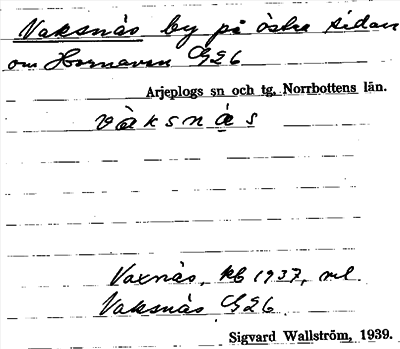 Vaksnäs by på östra sidan
om Hornavan G26
Arjeplogs sn och tg, Norrbottens län.
våksnäs
Vaxnäs, kb 1937, rul.
Vaksnäs G26
Sigvard Wallström, 1939.